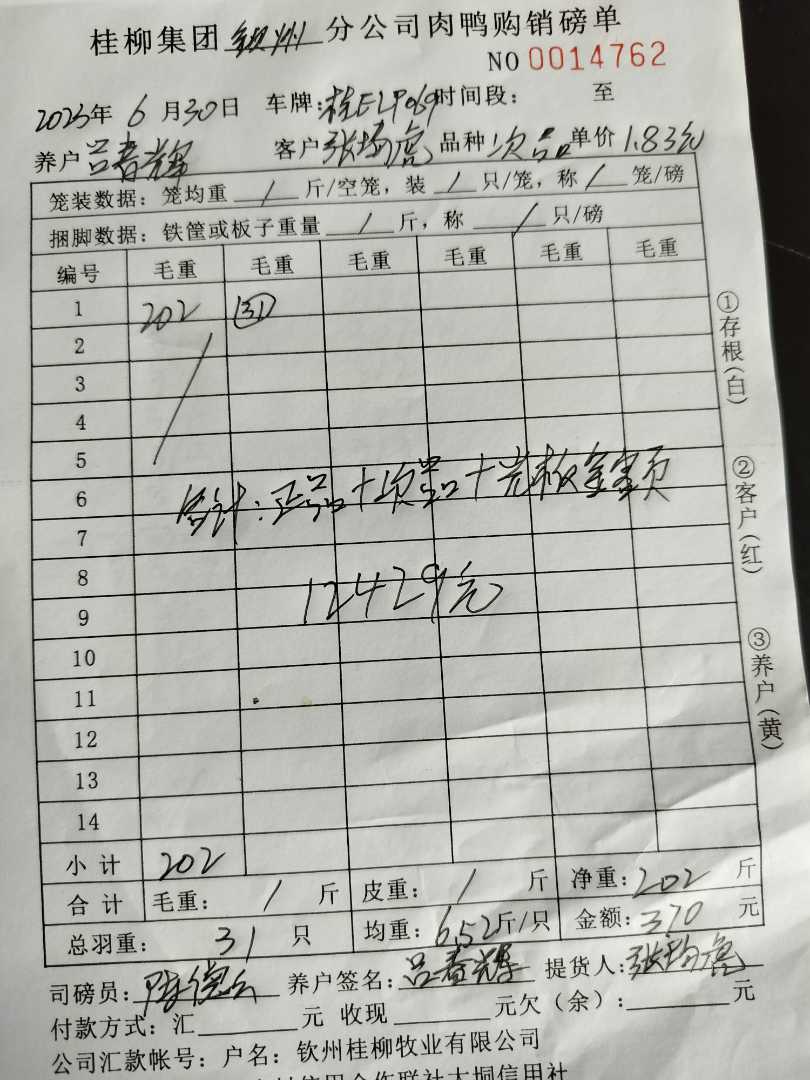 桂柳集团 钦州 分公司肉鸭购销磅单
NO 0014762
2023年 6 月30日 车牌:桂ELP069时间段: 至
养户 吕春辉 客户 品种 次品 单价 1.83元
笼装数据:笼均重 / 斤/空笼,装 / 只/笼,称 / 笼/磅
捆脚数据:铁筐或板子重量 / 斤,称 / 只/磅
编号 毛重 毛重 毛重 毛重 毛重 毛重
1 202 31
2
3
4
5
6
7
8
9
10
11
12
13
14
合计:正品+次品+光板金额
12429元
小计 202
合计 毛重: / 斤 皮重: / 斤 净重:202 斤
总羽重: 31 只 均重:6.52斤/只 金额:370 元
司磅员: 养户签名:吕春辉 提货人:
付款方式:汇 元 收现 元欠(余): 元
公司汇款帐号:户名:钦州桂柳牧业有限公司
信用合作联社大垌信用社
①存根(白)
②客户(红)
③养户(黄)